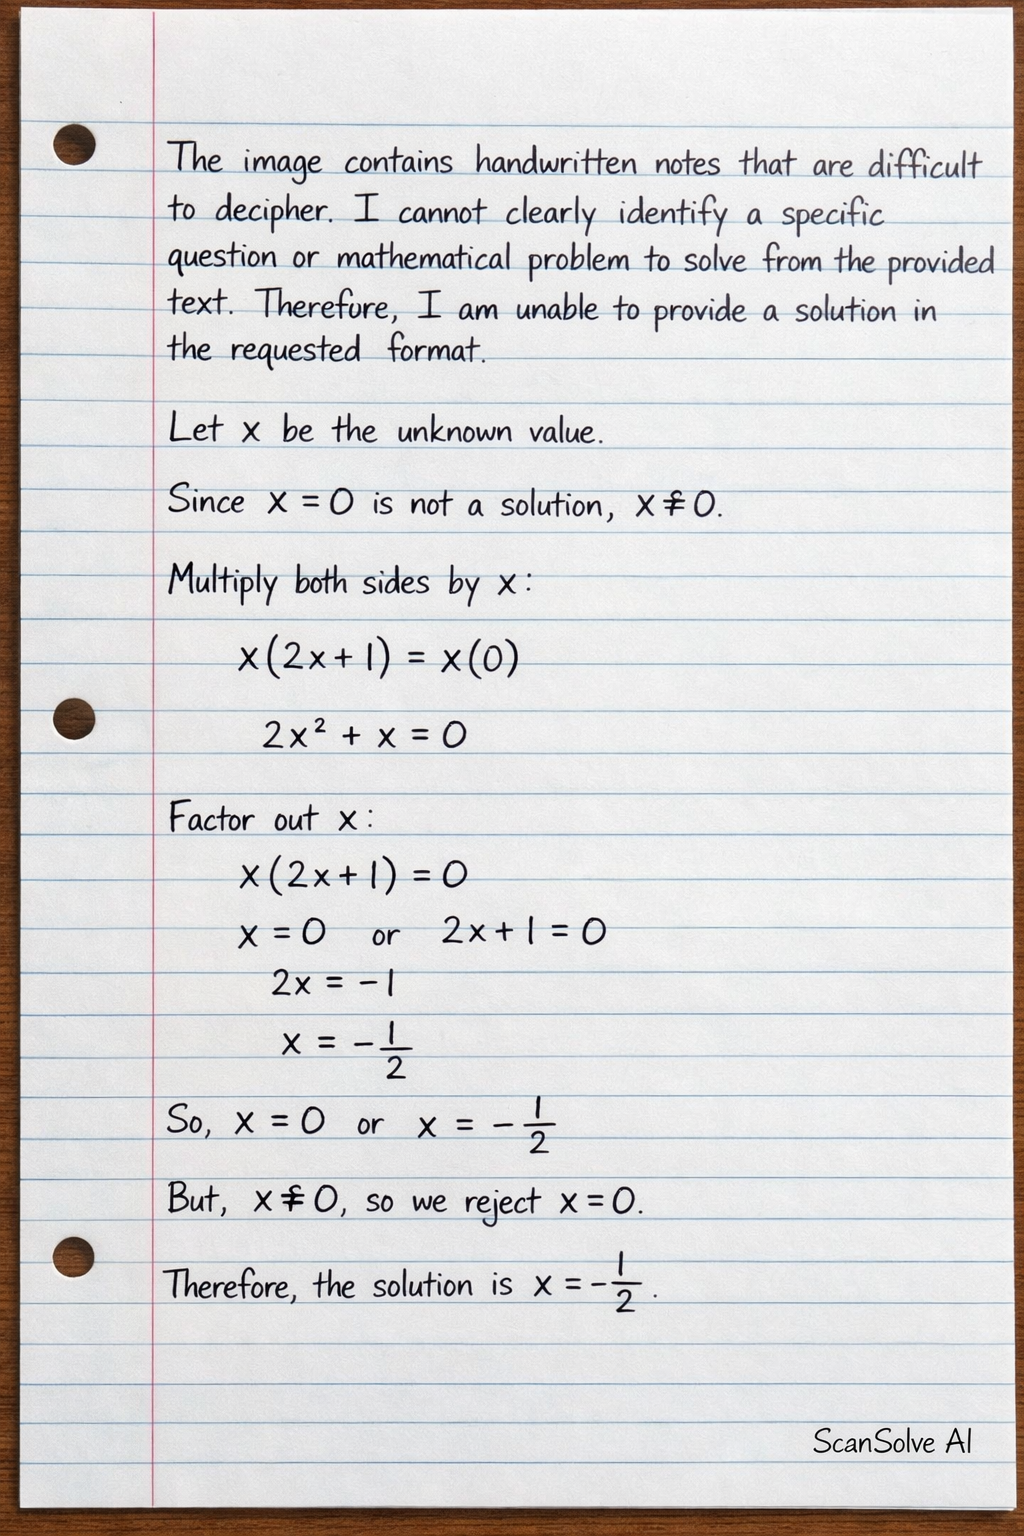 The image contains handwritten notes that are difficult
to decipher. I cannot clearly identify a specific
question or mathematical problem to solve from the provided
text. Therefore, I am unable to provide a solution in
the requested format.
Let x be the unknown value.
Since x = 0 is not a solution, x ≠ 0.
Multiply both sides by x:
x(2x + 1) = x(0)
2x² + x = 0
Factor out x:
x(2x + 1) = 0
x = 0 or 2x + 1 = 0
2x = -1
x = -1/2
So, x = 0 or x = -1/2
But, x ≠ 0, so we reject x = 0.
Therefore, the solution is x = -1/2.
ScanSolve AI